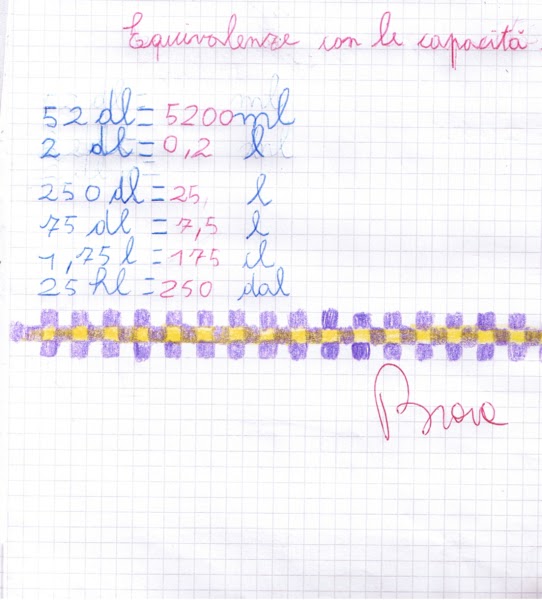 Equivalenze con le capacità
52 dl = 5200 ml
2 dl = 0,2 l
250 dl = 25 l
75 dl = 7,5 l
1,75 l = 175 cl
25 hl = 250 dal
Brava